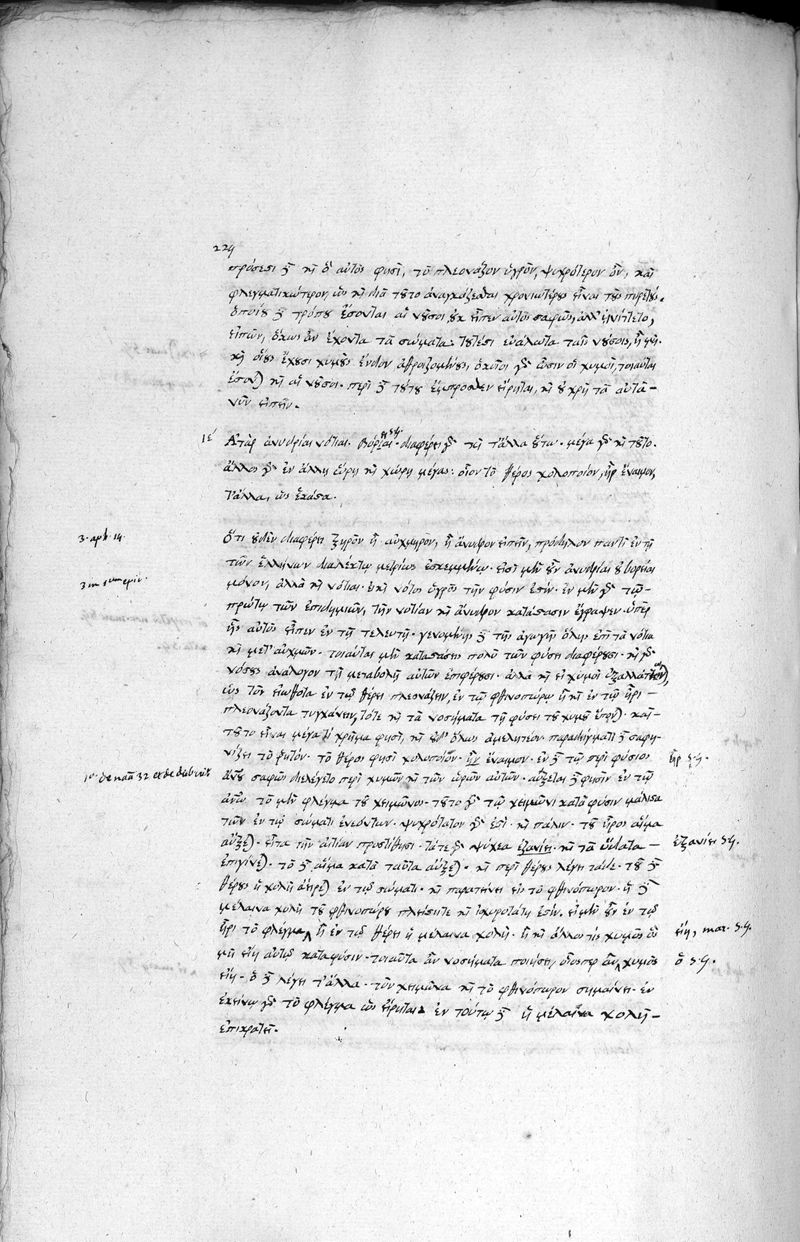 224
πρόσεςι δὲ καὶ δι' αὐτὸ φησὶ, τὸ πλεονάζον ὑγρὸν, ψυχρότερον ὂν, καὶ
φλεγματικώτερον, ὡς καὶ διὰ τοῦτο ἀναγκάζεσθαι χρονιωτέρους εἶναι τοὺς πυρετούς.
ὁποίου δὲ τρόπου ἔσονται αἱ νοῦσοι οὐκ εἶπεν αὐτὸς σαφῶς, ἀλλ'
εἰπὼν, ὅκως ἂν ἔχοντα τὰ σώματα. τουτέςι εὐάλωτα ταῖς νούσοις,
καὶ οἵους ἔχουσι χυμοὺς ἔνδον ἀθροιζομένους, ὁκοῖοι γὰρ ὦσιν οἱ χυμοὶ, τοιαῦται
ἔσονται καὶ αἱ νοῦσοι. περὶ δὲ τούτου ἔμπροσθεν εἴρηται, καὶ οὐ χρὴ τὰ αὐτὰ
νῦν εἰπεῖν.
ιέ Ἀτὰρ ἀνυδρίαι νότιαι. βόρειαι. διαφέρει γὰρ καὶ τἄλλα οὕτω. μέγα γὰρ καὶ τοῦτο.
ἄλλος γὰρ ἐν ἄλλῃ ὥρῃ καὶ χώρῃ μέγας. οἷον τὸ θέρος χολοποιὸν, ἦρ ἔναιμον,
τἄλλα, ὡς ἕκαςα.
3. aph. 14. ὅτι οὐδὲν διαφέρει ξηρὸν ἢ αὐχμηρὸν, ἢ ἄνυδρον εἰπεῖν, πρόδηλον παντὶ ἐν τῇ
τῶν ἑλλήνων διαλέκτῳ μετρίως ἐσκεμμένῳ. εἰσὶ μὲν οὖν ἀνυδρίαι οὐ βόρειαι
μόνον, ἀλλὰ καὶ νότιαι. καὶ νότος ὑγρὸς τὴν φύσιν ἐςίν. ἐν μὲν γὰρ τῷ
πρώτῳ τῶν ἐπιδημιῶν, τὴν νοτίαν καὶ ἄνυδρον κατάςασιν ἔγραψεν ὑπὲρ
ἧς αὐτὸς εἶπεν ἐν τῇ τελευτῇ. γενομένης δὲ τῆς ἀγωγῆς ὅλης ἐπὶ τὰ νότια
καὶ μετ' αὐχμῶν. τοιαῦται μὲν καταςάσεις πολὺ τῶν φύσει διαφέρουσι. καὶ γὰρ
νόσους ἀνάλογον τῇ μεταβολῇ αὐτῶν ἐπιφέρουσι. ἀλλὰ καὶ εἰ χυμοὶ ἐξαλλάττοιντο,
ὡς τὸν εἰωθότα ἐν τῷ θέρει πλεονάζειν, ἐν τῷ φθινοπώρῳ ἢ καὶ ἐν τῷ ἦρι
πλεονάζοντα τυγχάνειν, τότε καὶ τὰ νοσήματα τῇ φύσει τοῦ χυμοῦ ἕπονται. καὶ
τοῦτο εἶναι μέγα τι χρῆμα φησὶ, καὶ οὐδ' ὅλως ἀμελητέον. παραδείγματι δὲ σαφη-
νίζει τὸ ῥητόν. τὸ θέρος φησὶ χολοποιὸν. ἦν ἔναιμον. ἐν δὲ τῷ περὶ φύσιος ἦρ S.G.
ἀνθρώπου σαφῶς διελέγετο περὶ χυμῶν καὶ τῶν ὡρῶν αὐτῶν. αὔξεται δὲ φησὶν ἐν τῷ
ἀνθρώπῳ τὸ μὲν φλέγμα τοῦ χειμῶνος. τοῦτο γὰρ τῷ χειμῶνι κατὰ φύσιν μάλιςα
τῶν ἐν τῷ σώματι ἐνεόντων. ψυχρότατον γὰρ ἐςὶ. καὶ πάλιν. τοῦ ἦρος αἷμα
αὔξεται. εἶτα τὴν αἰτίαν προςίθησι. τότε γὰρ ψύχεα ἐξανίει. καὶ τὰ ὕδατα ἐξανίει S.G.
ἐπιγίνεται. τὸ δὲ αἷμα κατὰ ταῦτα αὔξεται. καὶ περὶ θέρους λέγει τάδε. τοῦ δὲ
θέρους ἡ χολὴ ἀείρεται ἐν τῷ σώματι. καὶ παρατείνει εἰς τὸ φθινόπωρον. ἡ δὲ
μέλαινα χολὴ τοῦ φθινοπώρου πλείςη τε καὶ ἰσχυροτάτη ἐςίν. εἰ μὲν οὖν ἐν τῷ
ἦρι τὸ φλέγμα, ἢ ἐν τῷ θέρει ἡ μέλαινα χολὴ. ἢ καὶ ἄλλος τις χυμὸς οὗ εἴη, mar. S.G.
μὴ εἴη αὐτῷ κατὰ φύσιν. τοιαῦτα ἂν νοσήματα ποιήσει, οἷόςπερ ἂν χυμὸς ὁ S.G.
εἴη. ὃ δὲ λέγει τἄλλα. τὸν χειμῶνα καὶ τὸ φθινόπωρον σημαίνει. ἐν
ἐκείνῳ γὰρ τὸ φλέγμα ὡς εἴρηται. ἐν τούτῳ δὲ ἡ μέλαινα χολὴ
ἐπικρατεῖ.